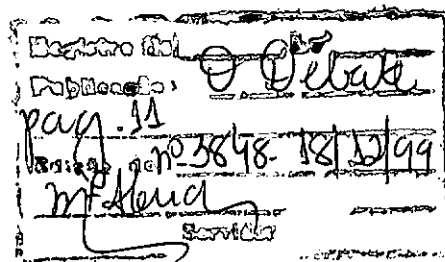 Registro da
Publicação: O Debate
pag. 11
nº 3848. 18/12/99
Servidor